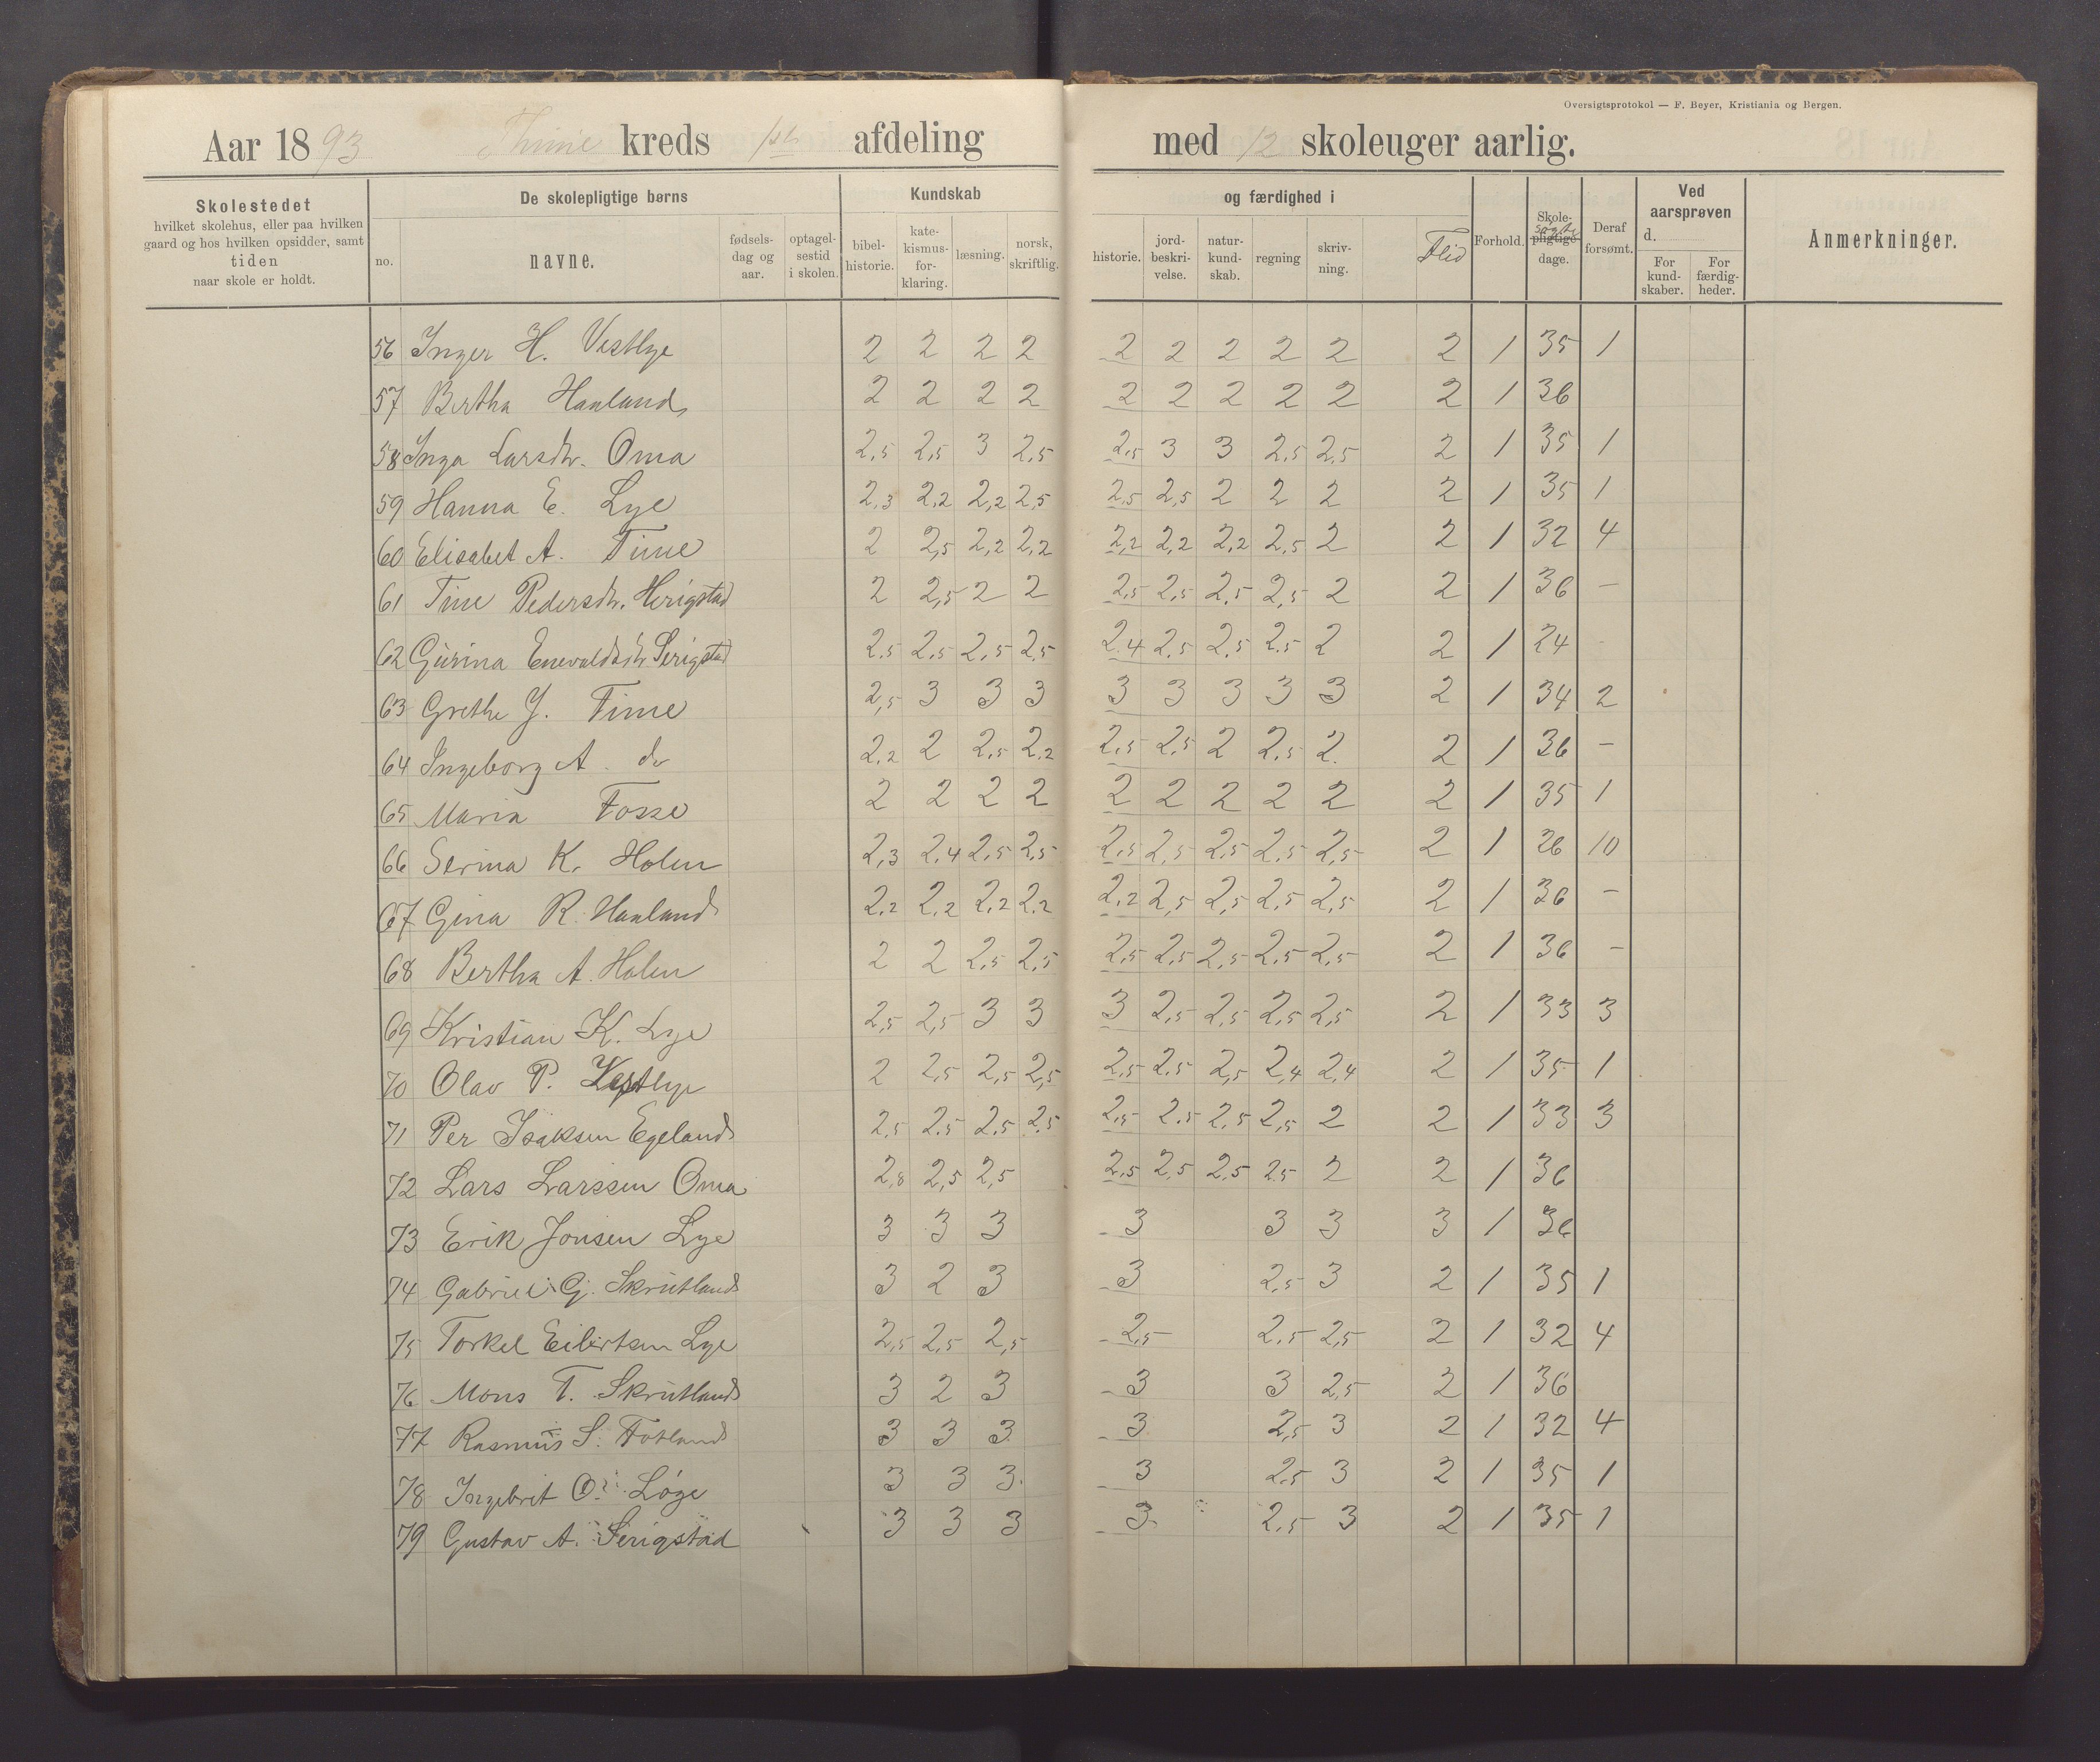 Oversigtsprotokol — F. Beyer, Kristiania og Bergen.
Aar 1893 Thime kreds 1ste afdeling med 12 skoleuger aarlig.
Skolestedet
hvilket skolehus, eller paa hvilken
gaard og hos hvilken opsidder, samt
tiden
naar skole er holdt.
De skolepligtige børns
no. navne. fødsels-dag og aar. optagel-sestid i skolen.
Kundskab
bibel-historie. kate-kismus-for-klaring. læsning. norsk, skriftlig.
og færdighed i
historie. jord-beskri-velse. natur-kund-skab. regning skriv-ning. Flid
Forhold. Skole-pligtige søgte dage. Deraf forsømt.
Ved aarsprøven d.
For kund-skaber. For færdig-heder.
Anmerkninger.
56 Inger H. Vestlye 2 2 2 2 2 2 2 2 2 2 1 35 1
57 Bertha Haaland 2 2 2 2 2 2 2 2 2 2 1 36
58 Inga Larsdtr. Oma 2,5 2,5 3 2,5 2,5 3 3 2,5 2,5 2 1 35 1
59 Hanna E. Lye 2,3 2,2 2,2 2,5 2,5 2,5 2 2 2 2 1 35 1
60 Elisabet A. Time 2 2,5 2,2 2,2 2,2 2,2 2,2 2,5 2 2 1 32 4
61 Tine Pedersdtr. Herigstad 2 2,5 2 2 2,5 2,5 2,5 2,5 2 2 1 36 –
62 Gurina Enevaldsdtr Serigstad 2,5 2,5 2,5 2,5 2,4 2,5 2,5 2,5 2 2 1 24 –
63 Grethe J. Time 2,5 3 3 3 3 3 3 3 3 2 1 34 2
64 Ingeborg A. do 2,2 2 2,5 2,2 2,5 2,5 2 2,5 2. 2 1 36 –
65 Maria Fosse 2 2 2 2 2 2 2 2 2 2 1 35 1
66 Serina K. Holen 2,3 2,4 2,5 2,5 2,5 2,5 2,5 2,5 2,5 2 1 26 10
67 Gina R. Haaland 2,2 2,2 2,2 2,2 2,2 2,5 2,5 2,5 2,5 2 1 36 –
68 Bertha A. Holen 2 2 2,5 2,5 2,5 2,5 2,5 2,5 2,5 2 1 36 –
69 Kristian K. Lye 2,5 2,5 3 3 3 2,5 2,5 2,5 2,5 2 1 33 3
70 Olav P. Vestlye 2 2,5 2,5 2,5 2,5 2,5 2,5 2,4 2,4 2 1 35 1
71 Per Isaksen Egeland 2,5 2,5 2,5 2,5 2,5 2,5 2,5 2,5 2 2 1 33 3
72 Lars Larssen Oma 2,8 2,5 2,5 2,5 2,5 2,5 2,5 2 2 1 36
73 Erik Jonsen Lye 3 3 3 3 3 3 3 1 36
74 Gabriel G. Skrutland 3 2 3 3 2,5 3 2 1 35 1
75 Torkel Eilertsen Lye 2,5 2,5 2,5 2,5 2,5 2,5 2 1 32 4
76 Mons T. Skrutland 3 2 3 3 3 2,5 2 1 36
77 Rasmus S. Fotland 3 3 3 3 2,5 3 2 1 32 4
78 Ingebrit O. Løge 3 3 3. 3 2,5 3 2 1 35 1
79 Gustav A. Serigstad 3 3 3 3 2,5 3 2 1 35 1